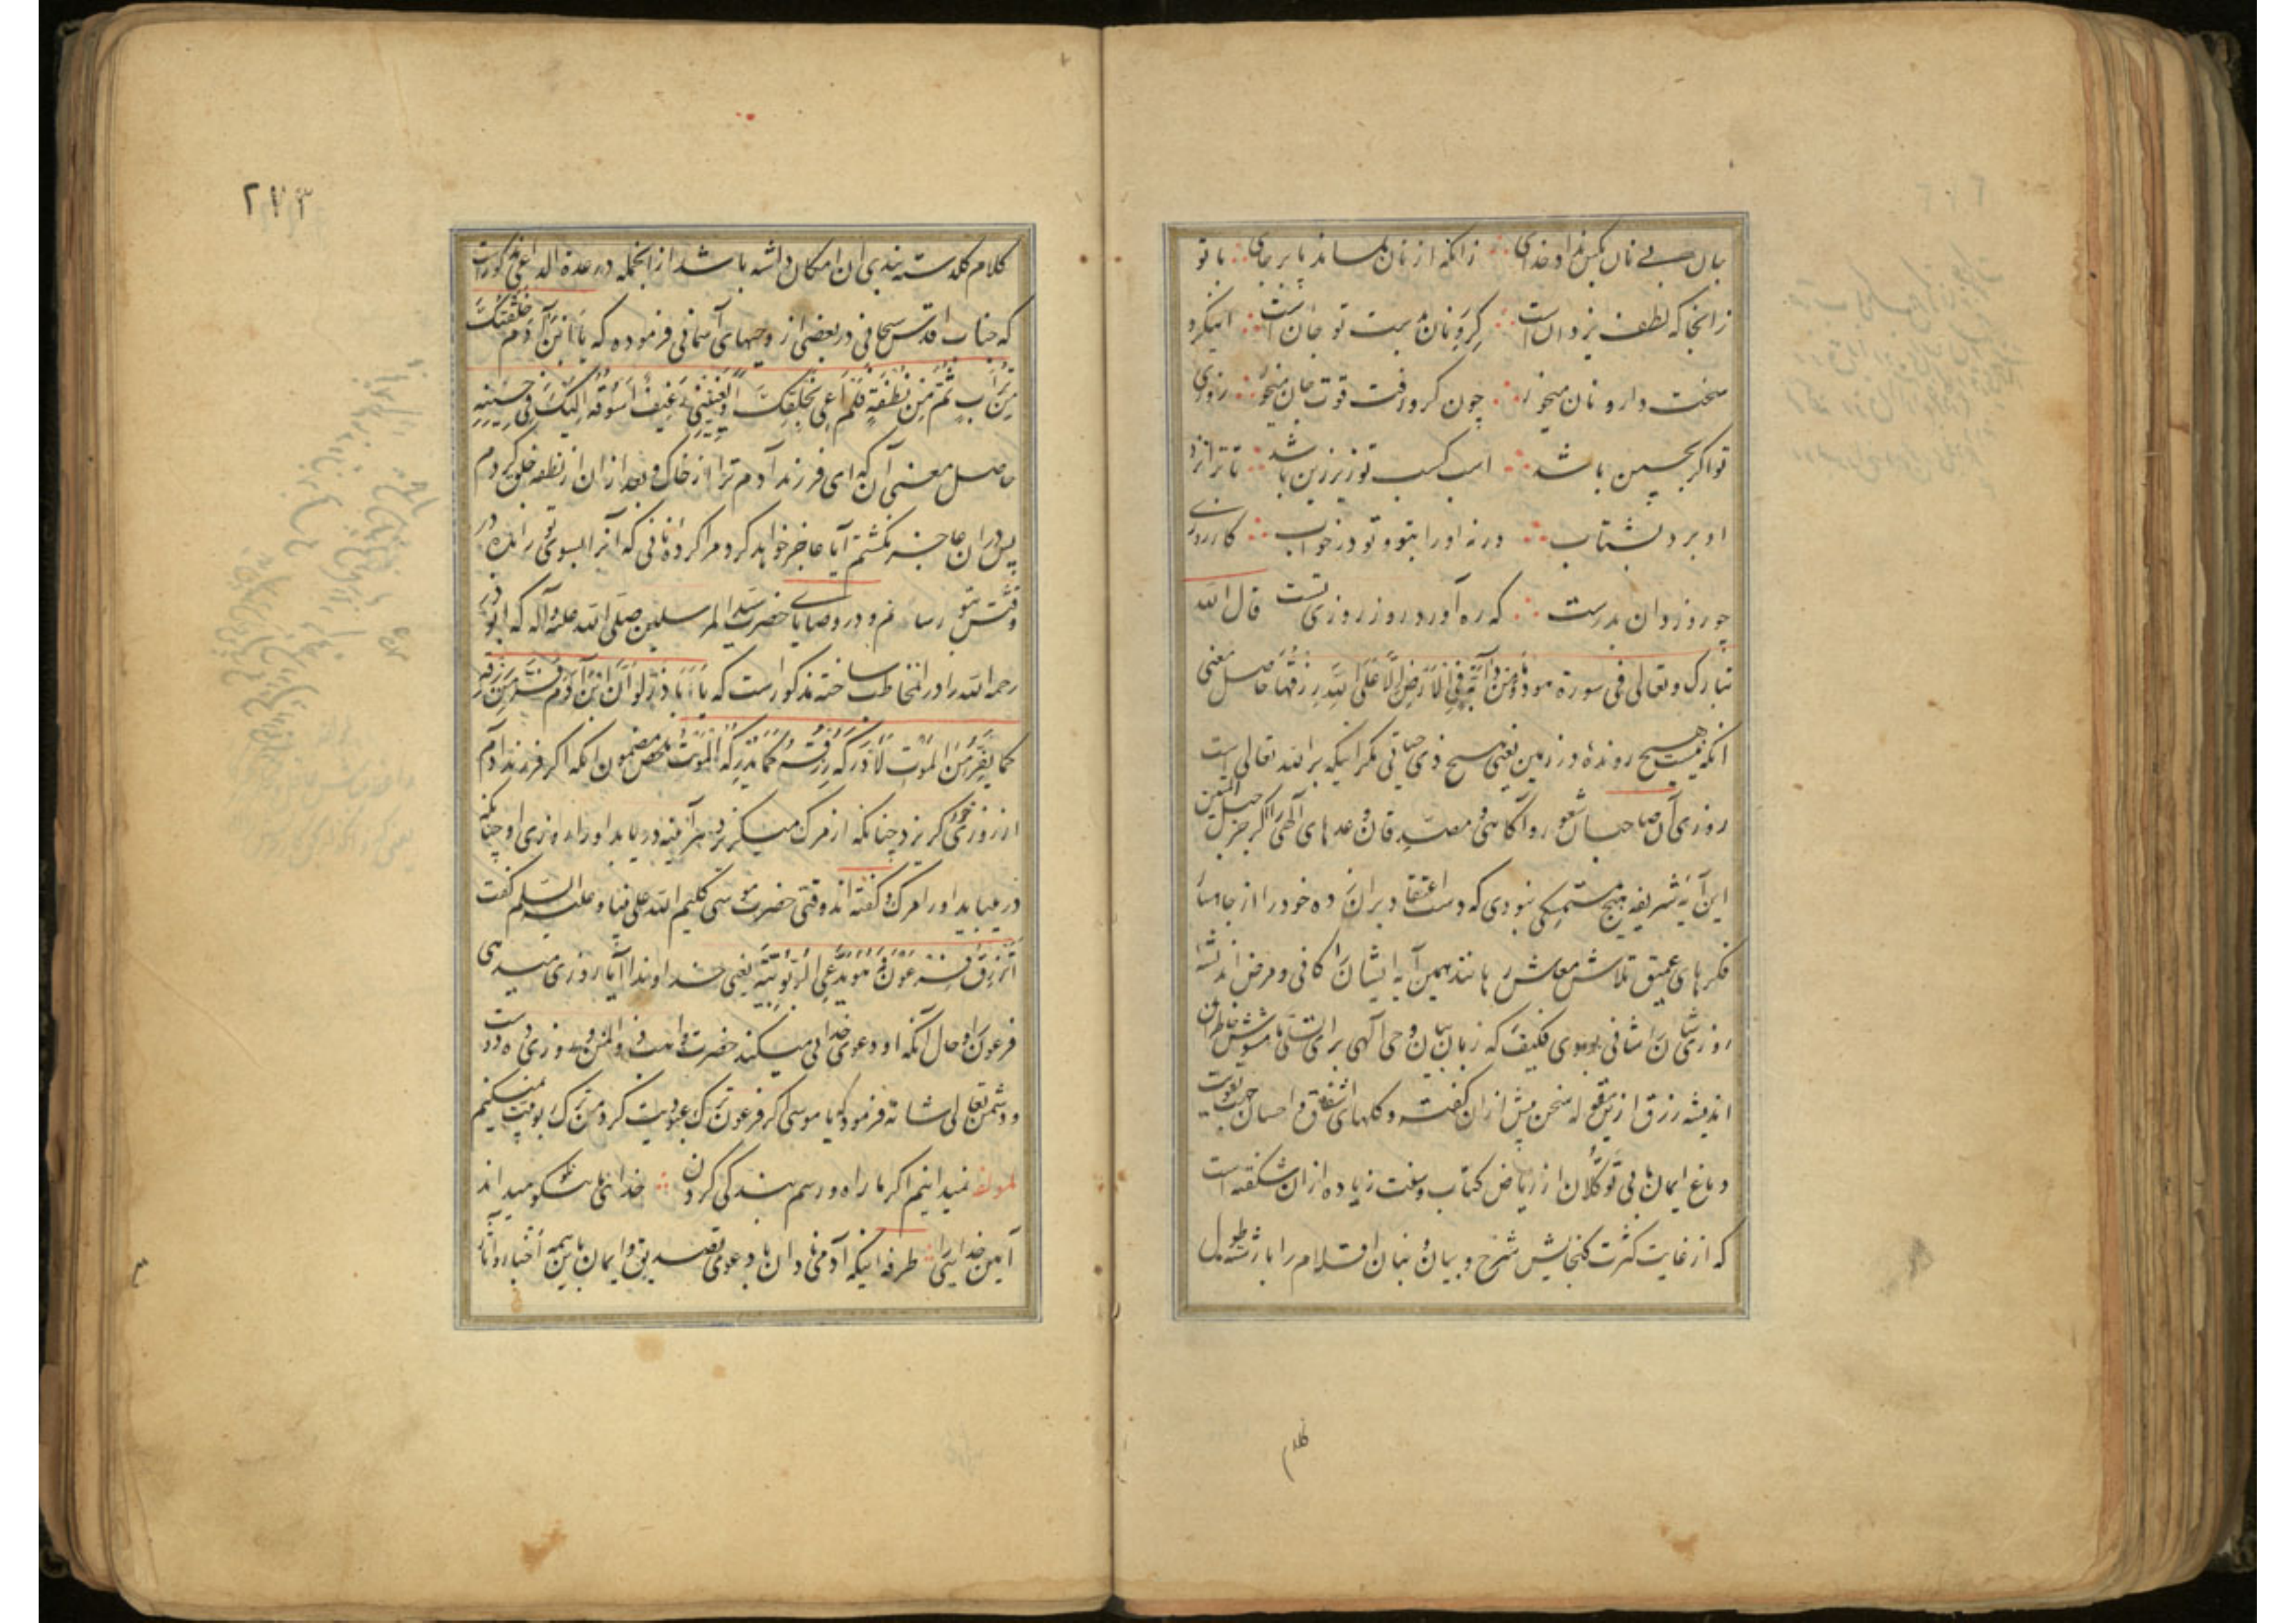 جان بی نان بکس نداد خدای زانکه از نان بماند جان بر جای با تو
زانجا که لطف یزدان است گرو نان بدست تو جان است اینگرو
سخت دار و نان میخور چون گرو رفت قوت جان میخور روزی
تو اگر بچین باشد اسب کسب تو زیر زین باشد تا ترا نزد
او برد بشتاب ورنه او را بتو و تو در خواب کار روزی
چو روز دان بدرست که ره آورد روز روزی تست قال الله
تبارک و تعالی فی سورة هود وما من دآبة فی الارض الا علی الله رزقها حاصل معنی
انکه نیست هیچ رونده در زمین یعنی هیچ ذی حیاتی مگر اینکه بر الله تعالی است
روزی آن صاحبان شعور و آگاهی و مصدقان وعدهای الهی را اگر جز حبل المتین
این آیه شریفه هیچ متمسکی نبودی که دست اعتقاد بران زده خود را از
فکرهای عمیق تلاش معاش رهانند همین آیه ایشان را کافی و مرض اندیشه
روزی شان را شافی بودی فکیف که زبان بیان وحی آلهی برای تسلی مشوش خاطران
اندیشه رزق ازین مقوله سخن بیش ازان گفته و گلهای اشفاق و احسان جهت تقویت
دماغ ایمان بی توکلان از ریاض کتاب و سنت زیاده ازان شکفته است
که از غایت کثرت گنجایش شرح و بیان بنان اقلام را با رشته طول
کلام
۲۷۳
کلام گلدسته بندی ان امکان داشته باشد از انجمله در عدة الداعی مذکور است
که جناب اقدس سبحانی در بعضی از وحیهای آسمانی فرموده که یا ابن آدم خلقتک
من تراب ثم من نطفة فلم اعی بخلقک او یعیینی رغیف اسوقه الیک فی حینه
حاصل معنی آن که ای فرزند آدم ترا از خاک و بعد از ان از نطفه خلق کردم
پس در ان عاجز نگشتم آیا عاجز خواهد کرد مرا گرده نانی که آنرا بسوی تو رانده در
وقتش بتو رسانم و در وصایای حضرت سید المرسلین صلی الله علیه و آله که ابوذر
رحمه الله را در ان مخاطب ساخته مذکور است که یا اباذر لو ان ابن آدم فر من رزقه
کما یفر من الموت لادرکه رزقه کما یدرکه الموت ملخص مضمون انکه اگر فرزند آدم
از روزی خود گریزد چنانکه از مرگ میگریزد هر آئینه دریابد او را روزی او چنانکه
در میابد او را مرگ و گفته اند وقتی حضرت موسی کلیم الله علی نبینا و علیه السلم گفت
اترزق فرعون و هو یدعی الربوبیة یعنی خداوندا آیا روزی میدهی
فرعون را و حال آنکه او دعوی خدائی میکند حضرت واهب المنن و روزی ده دوست
و دشمن تعالی شانه فرمود که یا موسی اگر فرعون ترک عبودیت کرد من ترک ربوبیت نمیکنم
لمؤلفه نمیدانیم اگر ما راه و رسم بندگی کردن خدای ما نکو میداند
آیین خدایی را طرفه اینکه آدمی نادان با دعوی تصدیق و ایمان باین همه اخبار و آثار